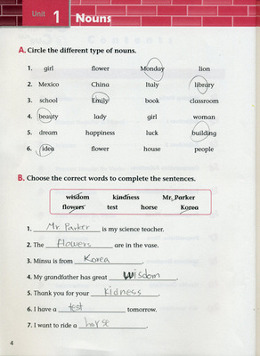 Unit 1 Nouns
A. Circle the different type of nouns.
1. girl flower Monday lion
2. Mexico China Italy library
3. school Emily book classroom
4. beauty lady girl woman
5. dream happiness luck building
6. idea flower house people
B. Choose the correct words to complete the sentences.
wisdom kindness Mr. Parker
flowers test horse Korea
1. Mr. Parker is my science teacher.
2. The flowers are in the vase.
3. Minsu is from Korea.
4. My grandfather has great wisdom.
5. Thank you for your kidness.
6. I have a test tomorrow.
7. I want to ride a horse.
4